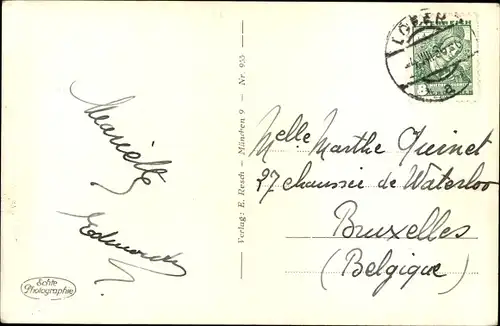 Marielle
Edmond
Echte
Photographie
Verlag: E. Resch - München 9 - Nr. 955
LOFER
Melle Marthe Quinet
27 chaussée de Waterloo
Bruxelles
(Belgique)